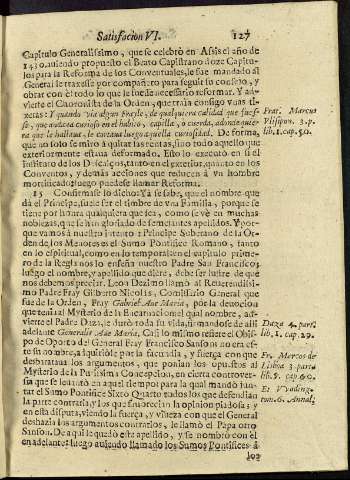 Satisfacion VI. 127
Capitulo Generalissimo, que se celebrò en Assis el año de
1430. auiendo propuesto el Beato Capistrano doze Capitu-
los para la Reforma de los Conventuales, le fue mandado al
General le traxesse por compañero para seguir su consejo, y
obrar con èl todo lo que le fuesse necessario reformar. Y ad-
vierte el Choronista de la Orden, que traìa consigo vnas ti-
xeras: Y quando via algun Frayle, de qualquiera calidad que fues-
se, que andava curioso en el habito, capilla, ò cuerda, adonde quie-
ra que le hallaua, le cortaua luego aquella curiosidad. De forma,
que no solo se mirò à quitar las rentas, sino todo aquello que
exteriormente estaua deformado. Esto lo executò en sì el
instituto de los Descalços, tanto en el exterior, quanto en los
Conventos, y demàs acciones que reducen à vn hombre
mortificado: luego puede se llamar Reforma.
15 Confirmase lo dicho: Ya se sabe, que el nombre que
dà el Principe, suele ser el timbre de vna Familia, porque se
tiene por honra qualquiera que sea, como se vè en mucha
nobleza, que se hàn gloriado de semejantes apellidos. Y por-
que vamos à nuestro intento: Principe Soberano de la Or-
den de los Menores es el Sumo Pontifice Romano, tanto
en lo espiritual, como en lo temporal: en el capitulo prime-
ro de la Regla nos lo enseña nuestro Padre San Francisco;
luego el nombre, y apellido que diere, debe ser lustre de que
nos debemos preciar. Leon Dezimo llamò al Reuerendissi-
mo Padre Fray Gilberto Nicolàs, Comissario General que
fue de la Orden, Fray Gabriel Aue Maria, por la devocion
que tenia al Mysterio de la Encarnacion: el qual nombre, ad-
vierte el Padre Daza, le durò toda su vida, firmandose de allì
adelante Generalis Aue Maria. Con lo mismo refiere el Obis-
po de Oporto del General Fray Francisco Sanson: no era es-
te su nombre, aquiriòle por la facundia, y fuerça con que
desbarataua los argumentos, que ponian los opuestos al
Mysterio de la Purissima Concepcion, en cierta controver-
sia que se leuantò en aquel tiempo; para la qual mandò jun-
tar el Sumo Pontifice Sixto Quarto todos los que defendian
la parte contraria, y los que fauorecian la opinion piadosa: y
en esta disputa, viendo la fuerça, y viveza con que el General
deshazia los argumentos contrarios, le llamò el Papa otro
Sanson. De aqui le quedò este apellido, y se nombrò con èl
en adelante: luego auiendo llamado los Sumos Pontifices à
los
Frat. Marcus
Vlisipon. 3. p.
lib. 1. cap. 50.
Daza 4. part.
lib. 1. cap. 29.
Fr. Marcos de
Lisboa 3. part.
lib. 8. cap. 60.